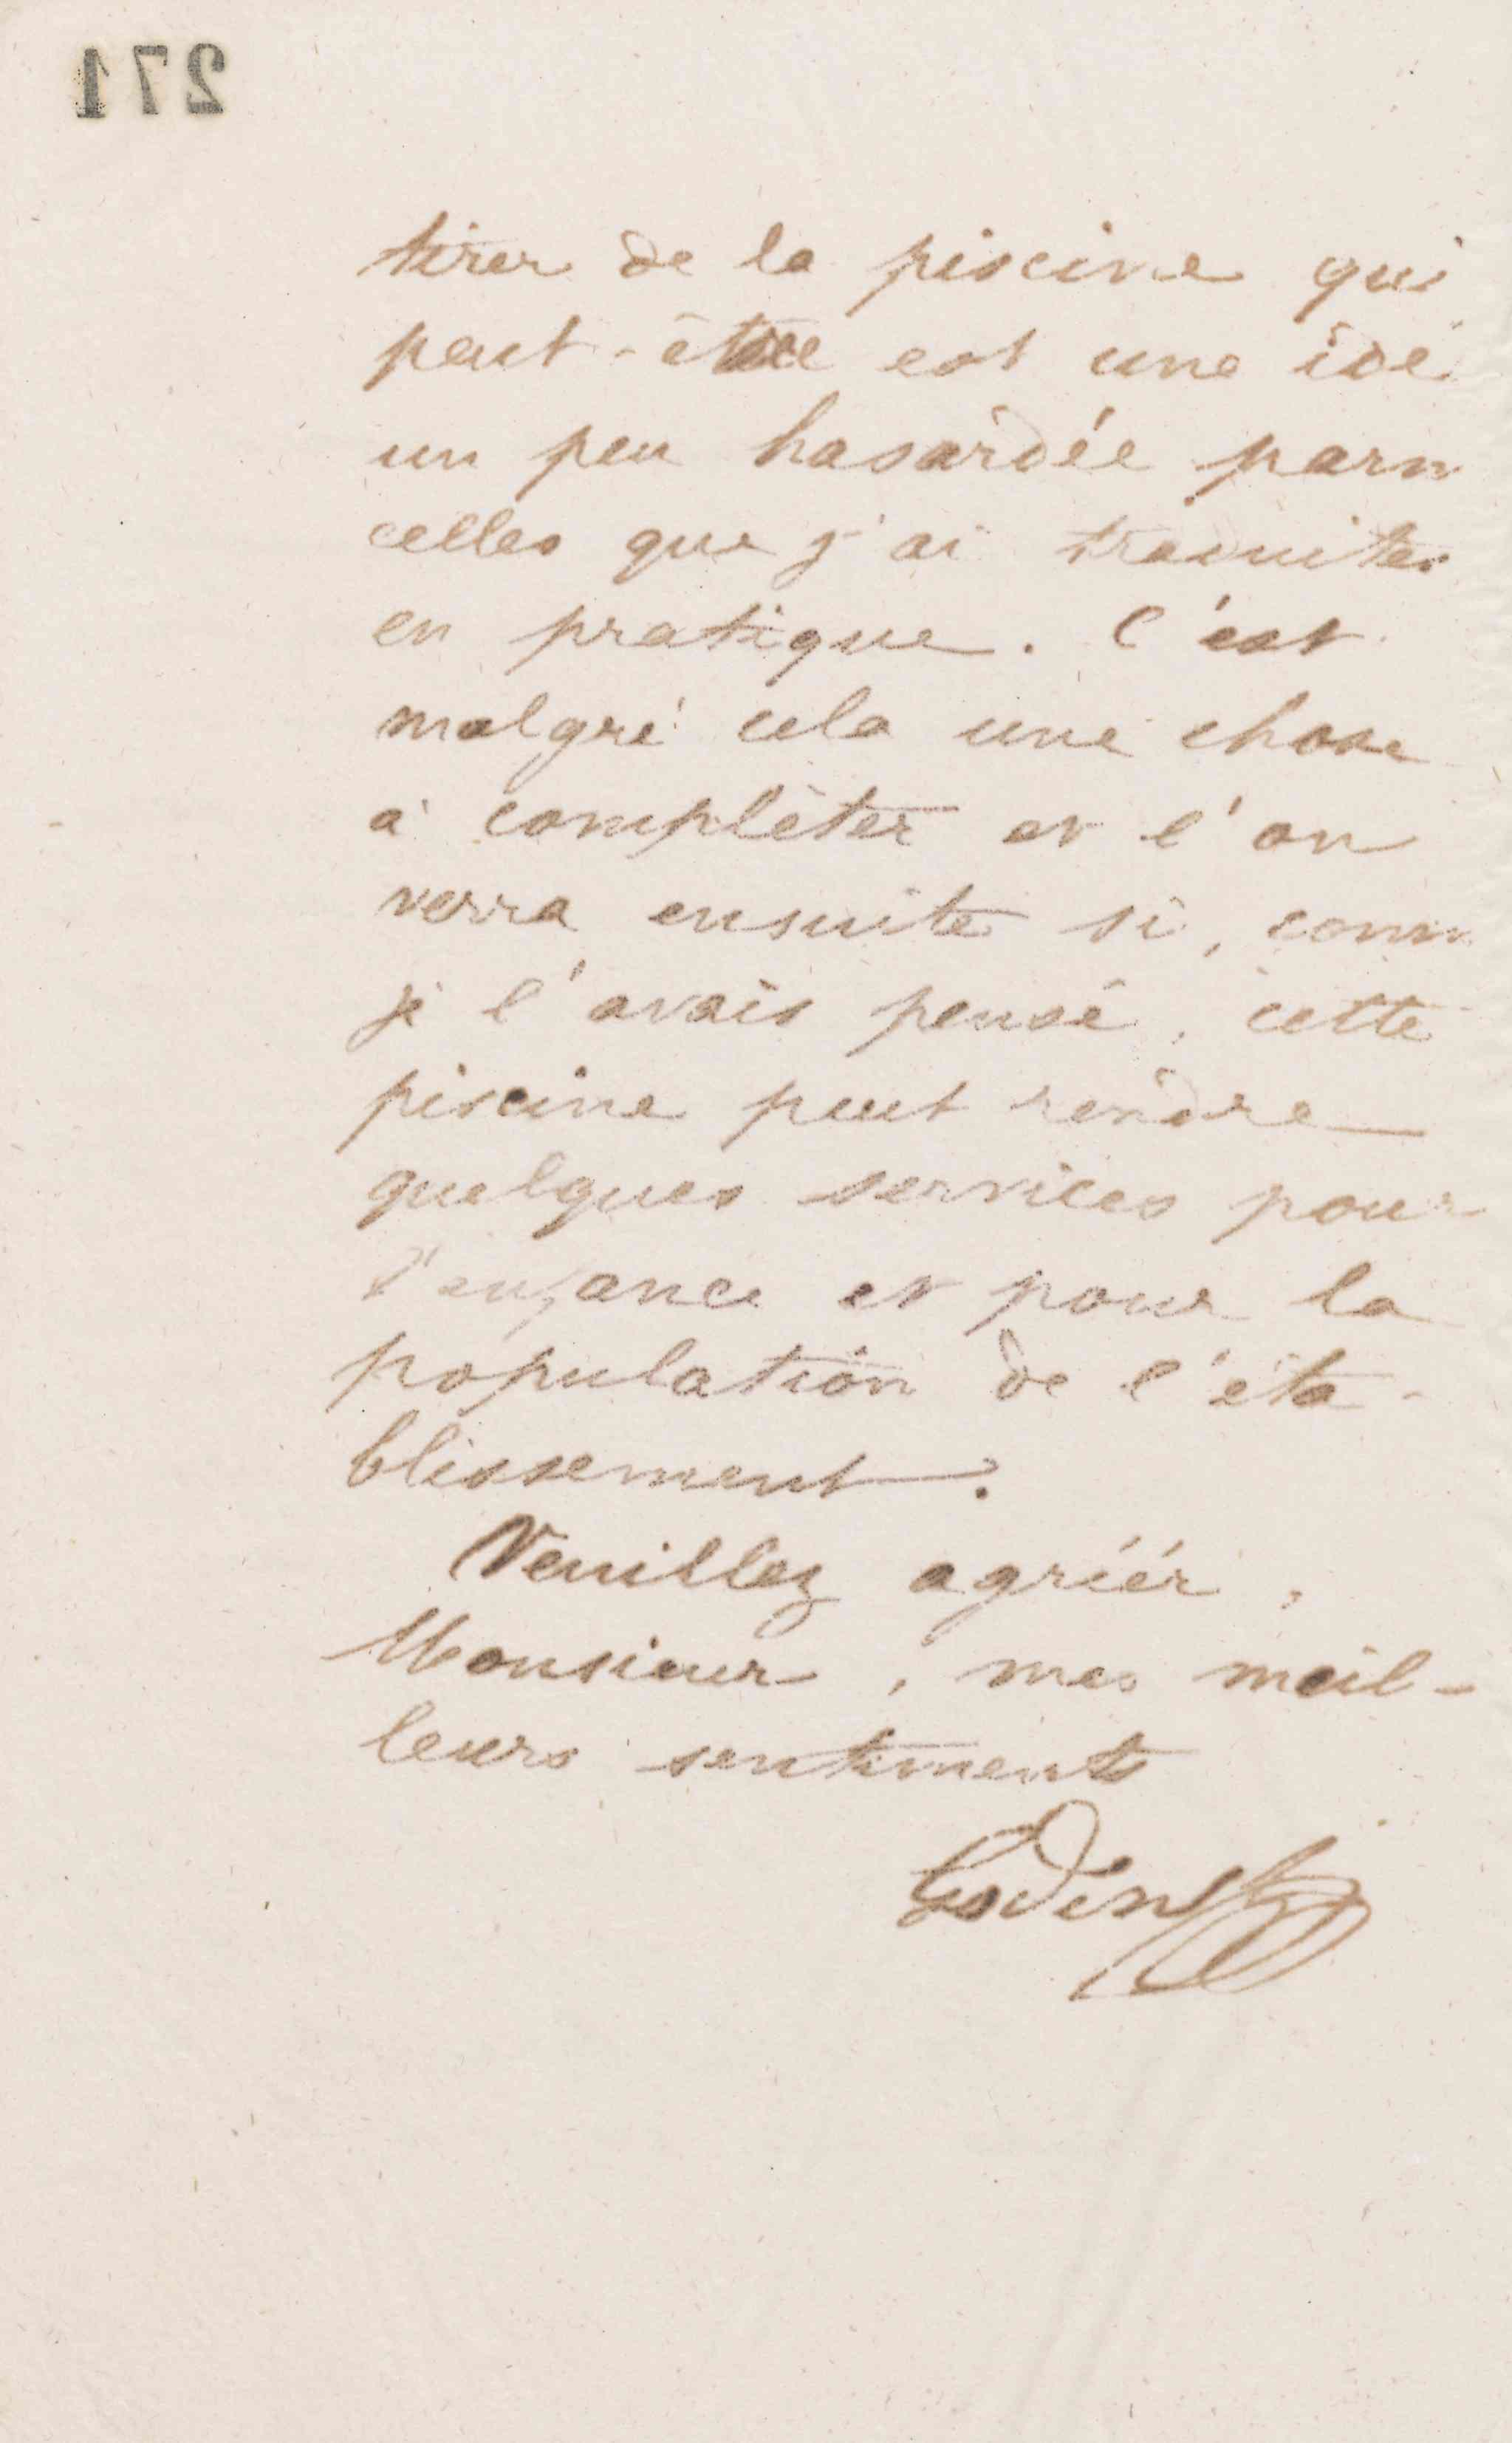 271
tirer de la piscine qui
peut-être est une idé
un peu hasardée parm
celles que j'ai traduites
en pratique. C'est
malgré cela une chose
à compléter et l'on
verra ensuite si, comm
je l'avais pensé, cette
piscine peut rendre
quelques services pour
l'enfance et pour la
population de l'éta-
blissement.
Veuillez agréér,
Monsieur, mes meil-
leurs sentiments
Godin